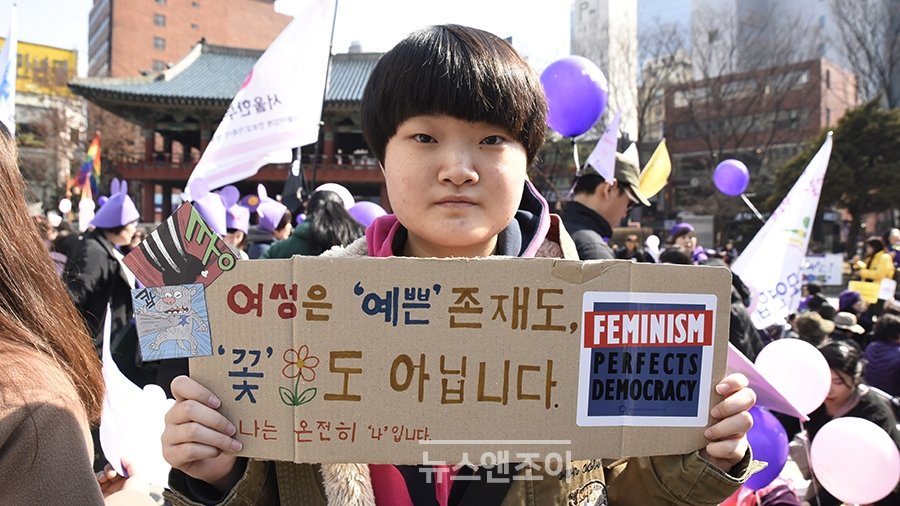 여성은 '예쁜' 존재도,
'꽃' 도 아닙니다.
나는 온전히 '나'입니다.
FEMINISM
PERFECTS
DEMOCRACY
쿵
뉴스앤조이